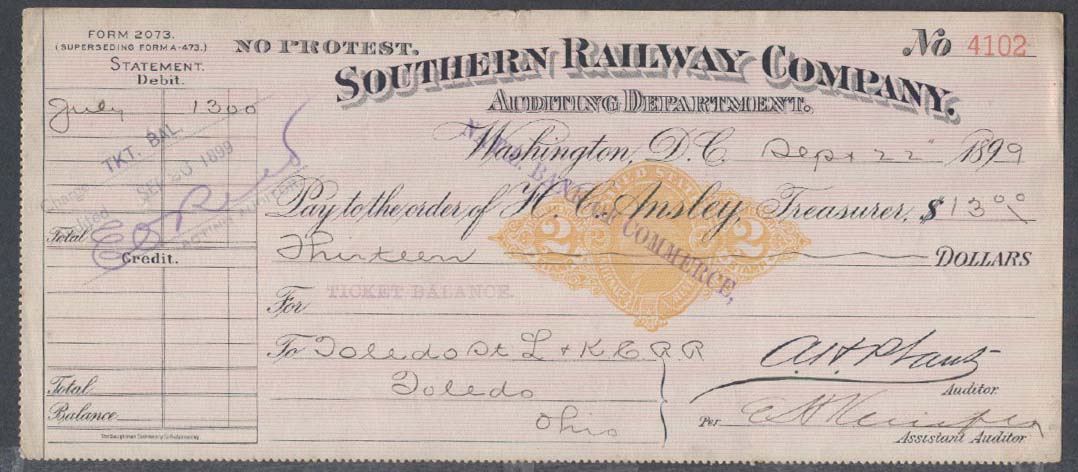 FORM 2073.
(SUPERSEDING FORM A-473.)
STATEMENT.
Debit.
July 13 00
TKT. BAL.
Charge
SEP 20 1899
Total
Credit.
Total
Balance
NO PROTEST.
No 4102
SOUTHERN RAILWAY COMPANY.
AUDITING DEPARTMENT.
Washington, D.C. Sept 22" 1899
NAT'L BANK OF COMMERCE,
Pay to the order of H. C. Ansley, Treasurer, $ 13 00
UNITED STATES
2 2
Thirteen DOLLARS
TICKET BALANCE.
For
To Toledo St L & K C R R
Toledo
Ohio
Auditor.
Per
Assistant Auditor